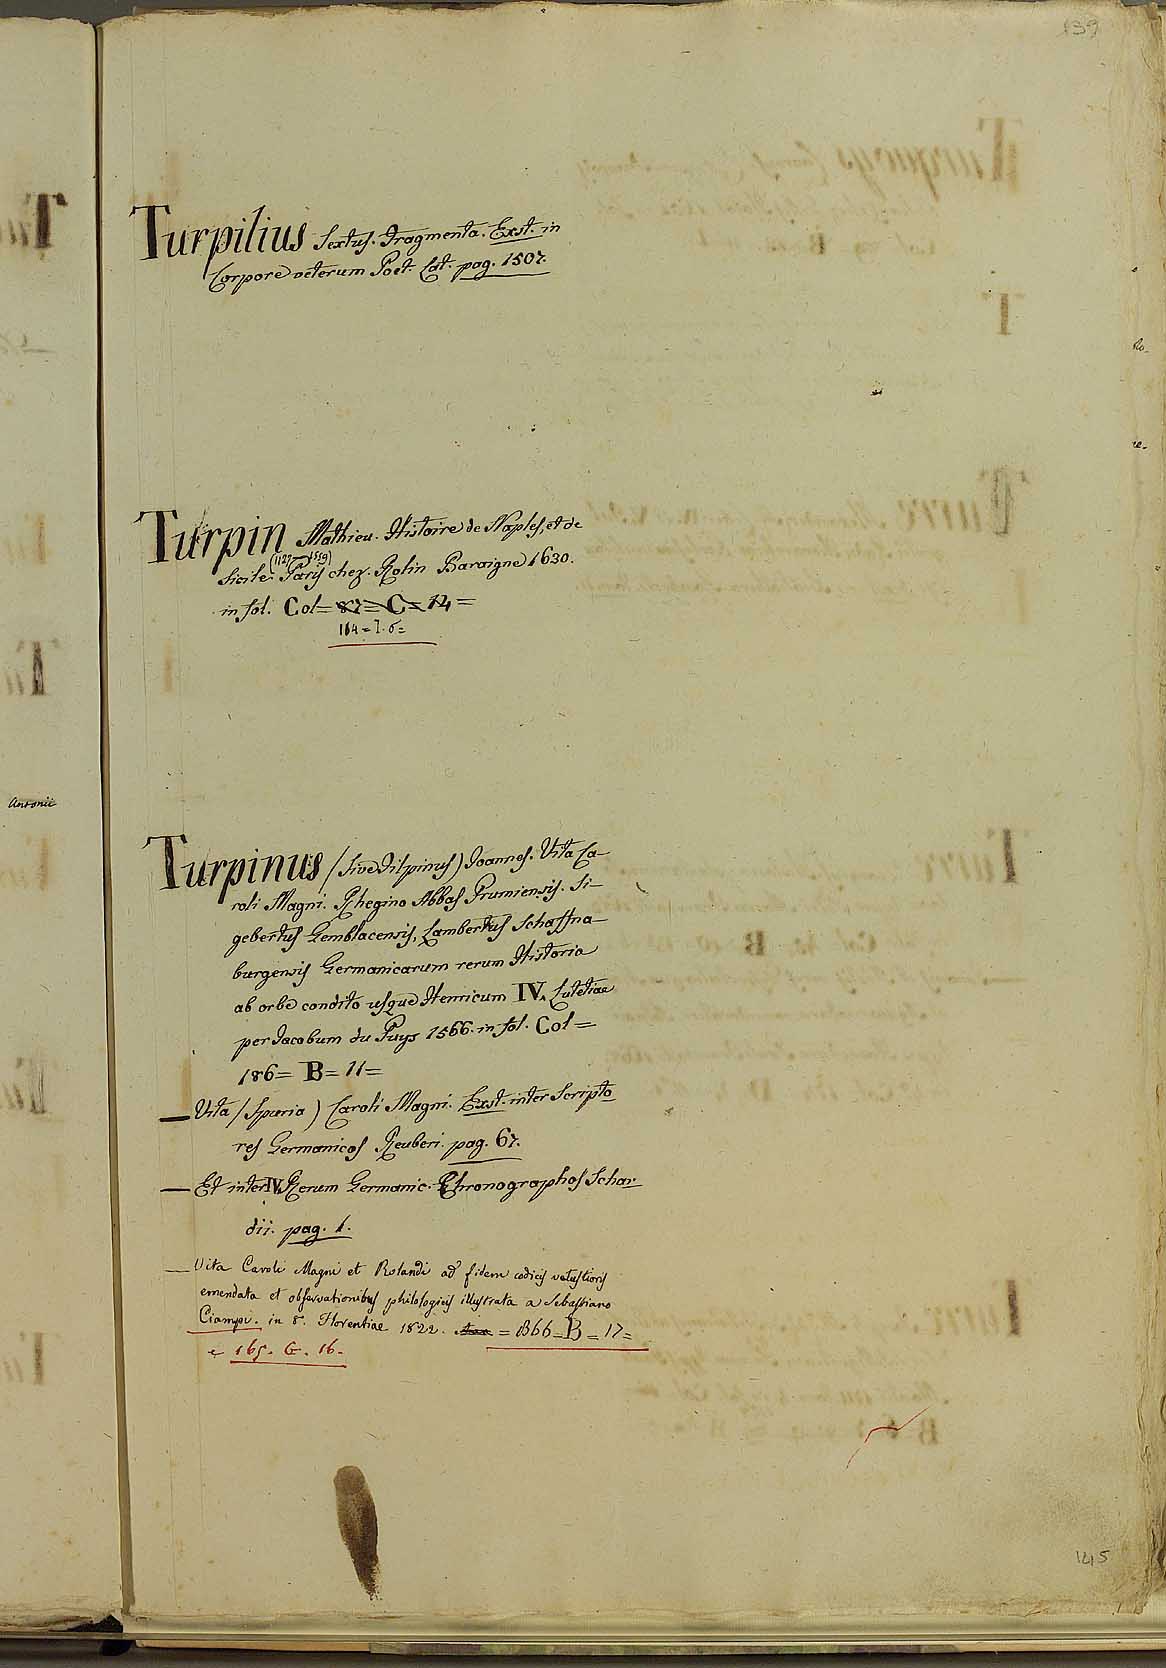 139
Turpilius Sextus. Fragmenta. Exst. in
Corpore veterum Poet. Lat. pag. 1507.
Turpin Mathieu. Histoire de Naples, et de
(1127–1519)
Sicile. Paris chez. Rolin Baraigne 1630.
in fol. Col= 87= C= 14=
164= I. 6=
Antonii
Turpinus (sive Tilpinus) Joannes. Vita Ca-
roli Magni. Rhegino Abbas Prumiensis. Si-
gebertus Gemblacensis, Lambertus Schaffna-
burgensis Germanicarum rerum Historia
ab orbe condito usque Henricum IV. Lutetiae
per Jacobum du Puys 1566. in fol. Col=
186= B= 11=
— Vita (Spuria) Caroli Magni. Exst. inter Scripto
res Germanicos Reuberi. pag. 67.
— Et inter IV. Rerum Germanic. Chronographos Schar-
dii. pag. 1.
— Vita Caroli Magni et Rolandi ad fidem codicis vetustioris
emendata et observationibus philologicis illustrata a Sebastiano
Ciampi. in 8. Florentiae 1822. = B66= B= 17=
e 165. G. 16.
145